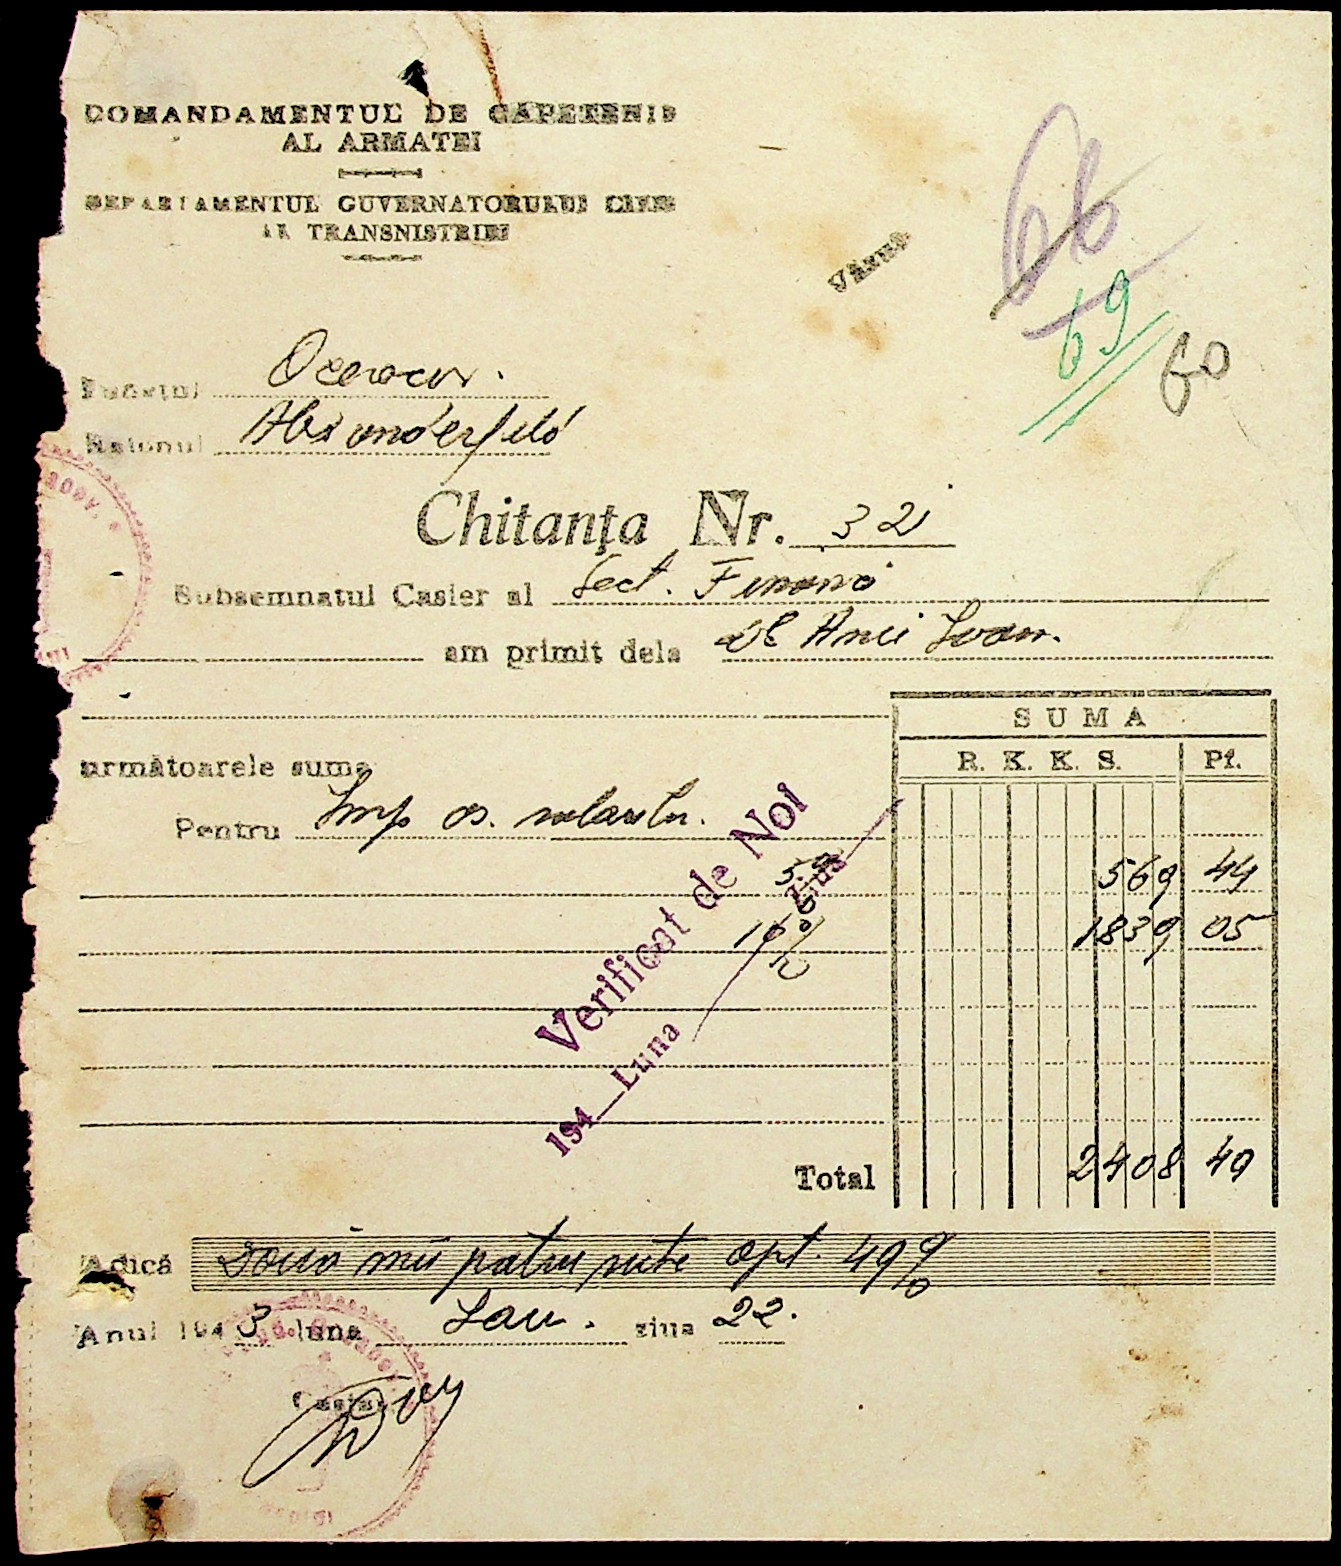 COMANDAMENTUL DE CAPETENIE
AL ARMATEI
DEPARTAMENTUL GUVERNATORULUI CIVIL
AL TRANSNISTRIEI
Văzut
66
69
60
Judeţul Oceacov.
Raionul Alexanderfeld
Chitanţa Nr. 32
Subsemnatul Casier al Sect. Financ
am primit dela
SUMA
următoarele sume
R. K. K. S. Pf.
Pentru Imp as.
569 44
1839 05
Verificat de Noi
194 Luna Ziua
Total 2408 49
Adică Două mii patru sute opt. 49%
Anul 1943 luna Ian. ziua 22.
Casier